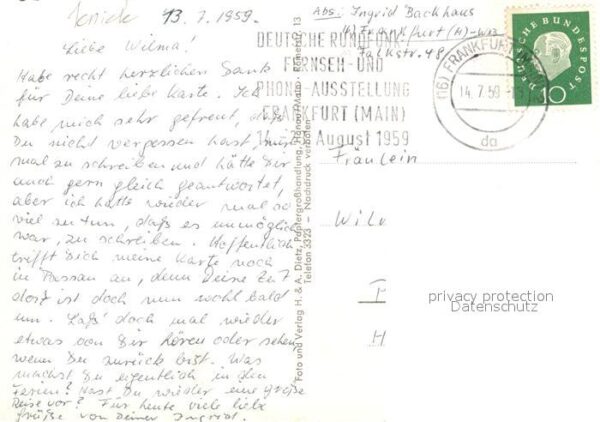 13. 7. 1959.
Liebe Wilma!
Habe recht herzlichen Dank
für Deine liebe Karte. Ich
habe mich sehr gefreut, daß
Du nicht vergessen hast, mir
mal zu schreiben und hätte Dir
auch gern gleich geantwortet,
aber ich hatte wieder mal so
viel zu tun, daß es unmöglich
war, zu schreiben. Hoffentlich
trifft Dich meine Karte noch
in Passau an, denn Deine Zeit
dort ist doch nun wohl bald
um. Laß' doch mal wieder
etwas von Dir hören oder sehen,
wenn Du zurück bist. Was
machst Du eigentlich in den
Ferien? Hast Du wieder eine große
Reise vor? Für heute viele liebe
Grüße von Deiner Ingrid.
Foto und Verlag H. & A. Dietz, Papiergroßhandlung, Hanau/Main, Römerstr. 13
Telefon 3323 — Nachdruck verboten
Abs: Ingrid Backhaus
Frankfurt (M)-W13
Falkstr. 48
DEUTSCHE RUNDFUNK-
FERNSEH- UND
PHONO-AUSSTELLUNG
FRANKFURT (MAIN)
August 1959
(16) FRANKFURT
14.7.59
da
DEUTSCHE BUNDESPOST
10
Fräulein
Wil
H
privacy protection
Datenschutz